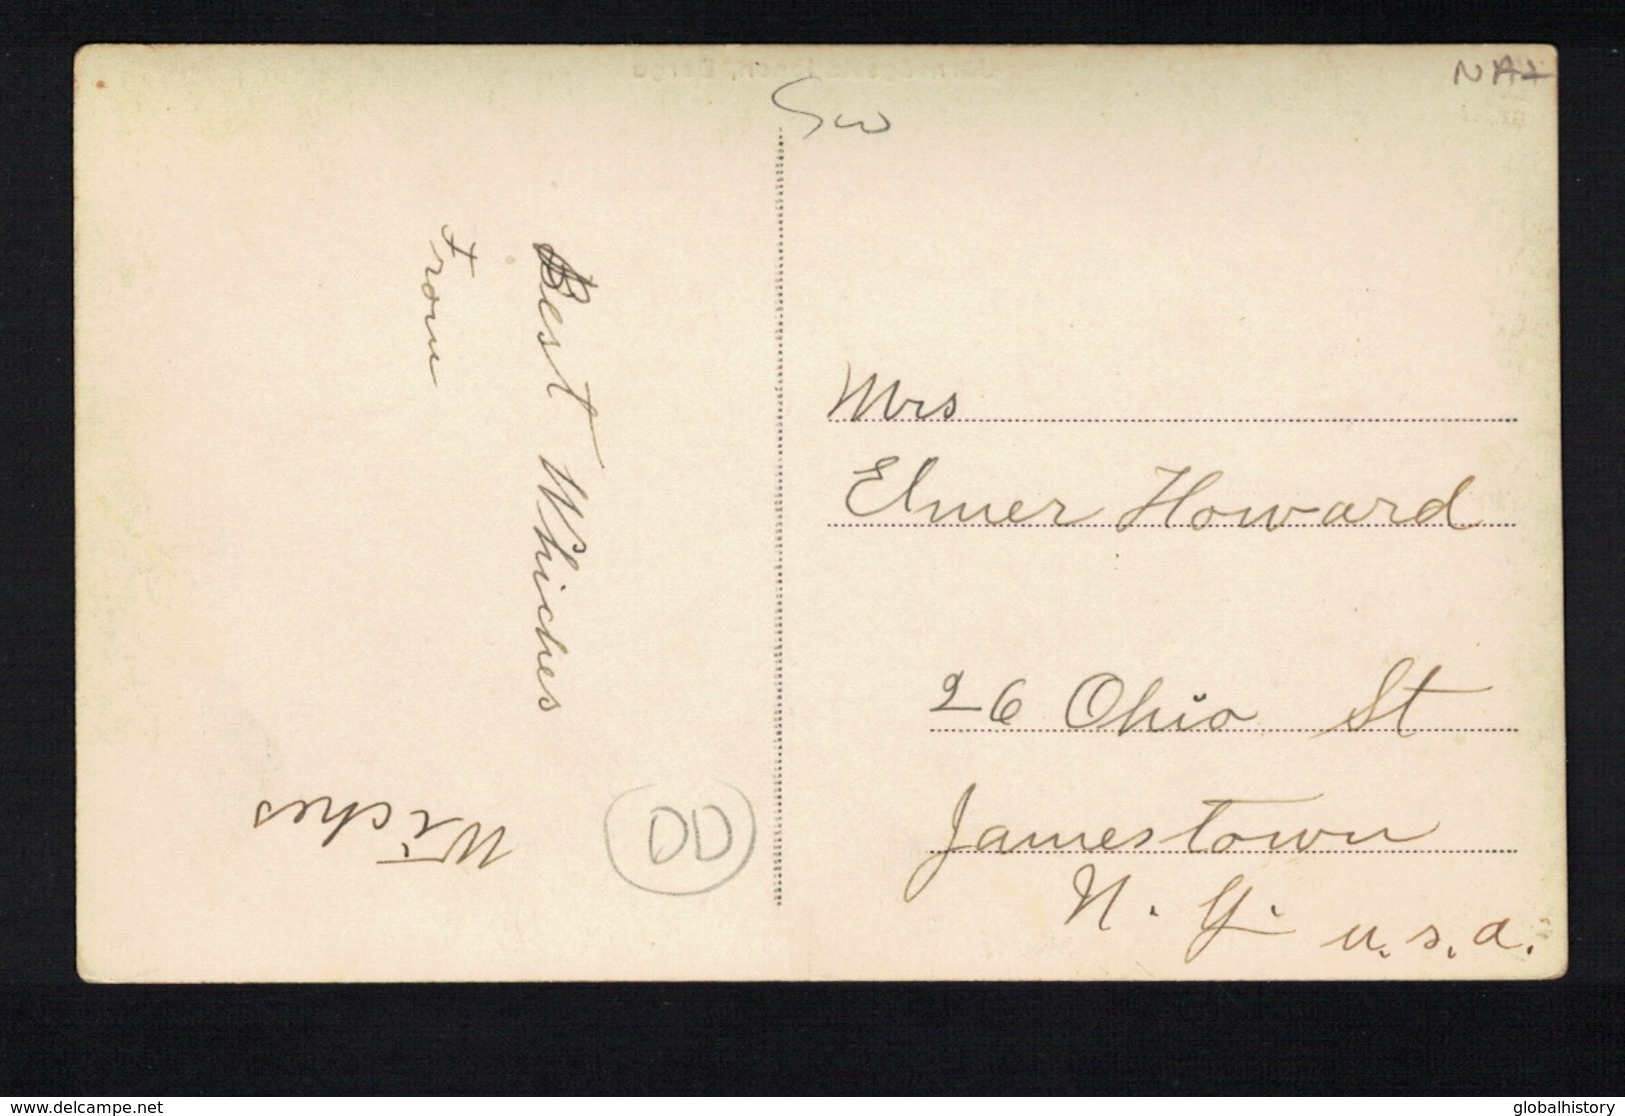 Best Whiches
From
Wiches
DD
Sw
Mrs
Elmer Howard
26 Ohio St
Jamestown
N. Y. u.s.a.
delcampe.net
globalhistory